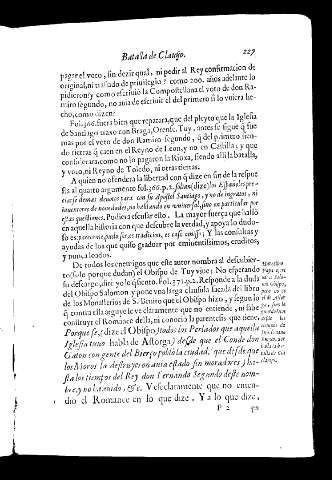 Batalla de Clauijo. 227
pagar el voto, sin dezir qual, ni pedir al Rey confirmacion de
original, ni traslado de priuilegio? como 200. años adelante lo
pidieron? y como escriuió la Compostellana el voto de don Ra-
miro segundo, no auia de escriuir el del primero si lo vuiera he-
cho, como dizen?
Fol. 366. fuera bien que reparara, que del pleyto que la Iglesia
de Santiago traxo con Braga, Orense, Tuy, antes se sigue q̃ fue
mas por el voto de don Ramiro segundo, q̃ del primero sien-
do tierras q̃ caen en el Reyno de Leon, y no en Castilla; y que
considerara como no la pagaron la Rioxa, siendo allà la batalla,
y voto, ni Reyno de Toledo, ni otras tierras.
A quien no ofendera la libertad con q̃ dize en fin de la respue
sta al quarto argumento fol. 366. p. 2. solian (dize) los Españoles pre-
ciarse de mas deuotos para con su Apostol Santiago, y no de ingratos, ni
inuentores de nouedades, no hablando en vniuersal, sino en particular por
estas questiones. Pudiera escusar esto. La mayor fuerça que hallò
en aquella historia con que descubre la verdad, y apoya lo dudo-
so es: y tradicion, es casi comun; Y las consultas y
ayudas de los que quiso graduar por eminentissimos, eruditos,
y nunca loados.
De todos los enemigos que este autor nombra al descubier-
to (solo porque dudan) el Obispo de Tuy viue; No esperando
su descargo, dire yo lo q̃ siento. Fol. 371. p. 2. Responde a la duda
del Obispo Salomon, y pone vna larga clausula sacada del libro
de los Monasterios de S. Benito que el Obispo hizo, y segun lo
q̃ contra ella arguye se ve claramente que no entiende, ni sabe
construyr el Romance della, ni conocio la parentesis que tiene,
Porque se, (dize el Obispo) todos los Perlados que aquella
Iglesia tuuo (habla de Astorga) desde que el Conde don
Gaton con gente del Bierço publò la ciudad, (que desde que
los Moros la destruyeron auia estado sin moradores) ha-
sta los tiempos del Rey don Fernando Segundo deste nom-
bre, y no ha auido, &c. Vese claramente que no enten-
dio el Romance en lo que dize, Ya lo que dize,
P 2 que